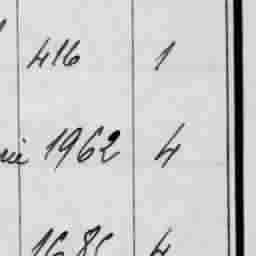 416 1
1962 4
1685 4